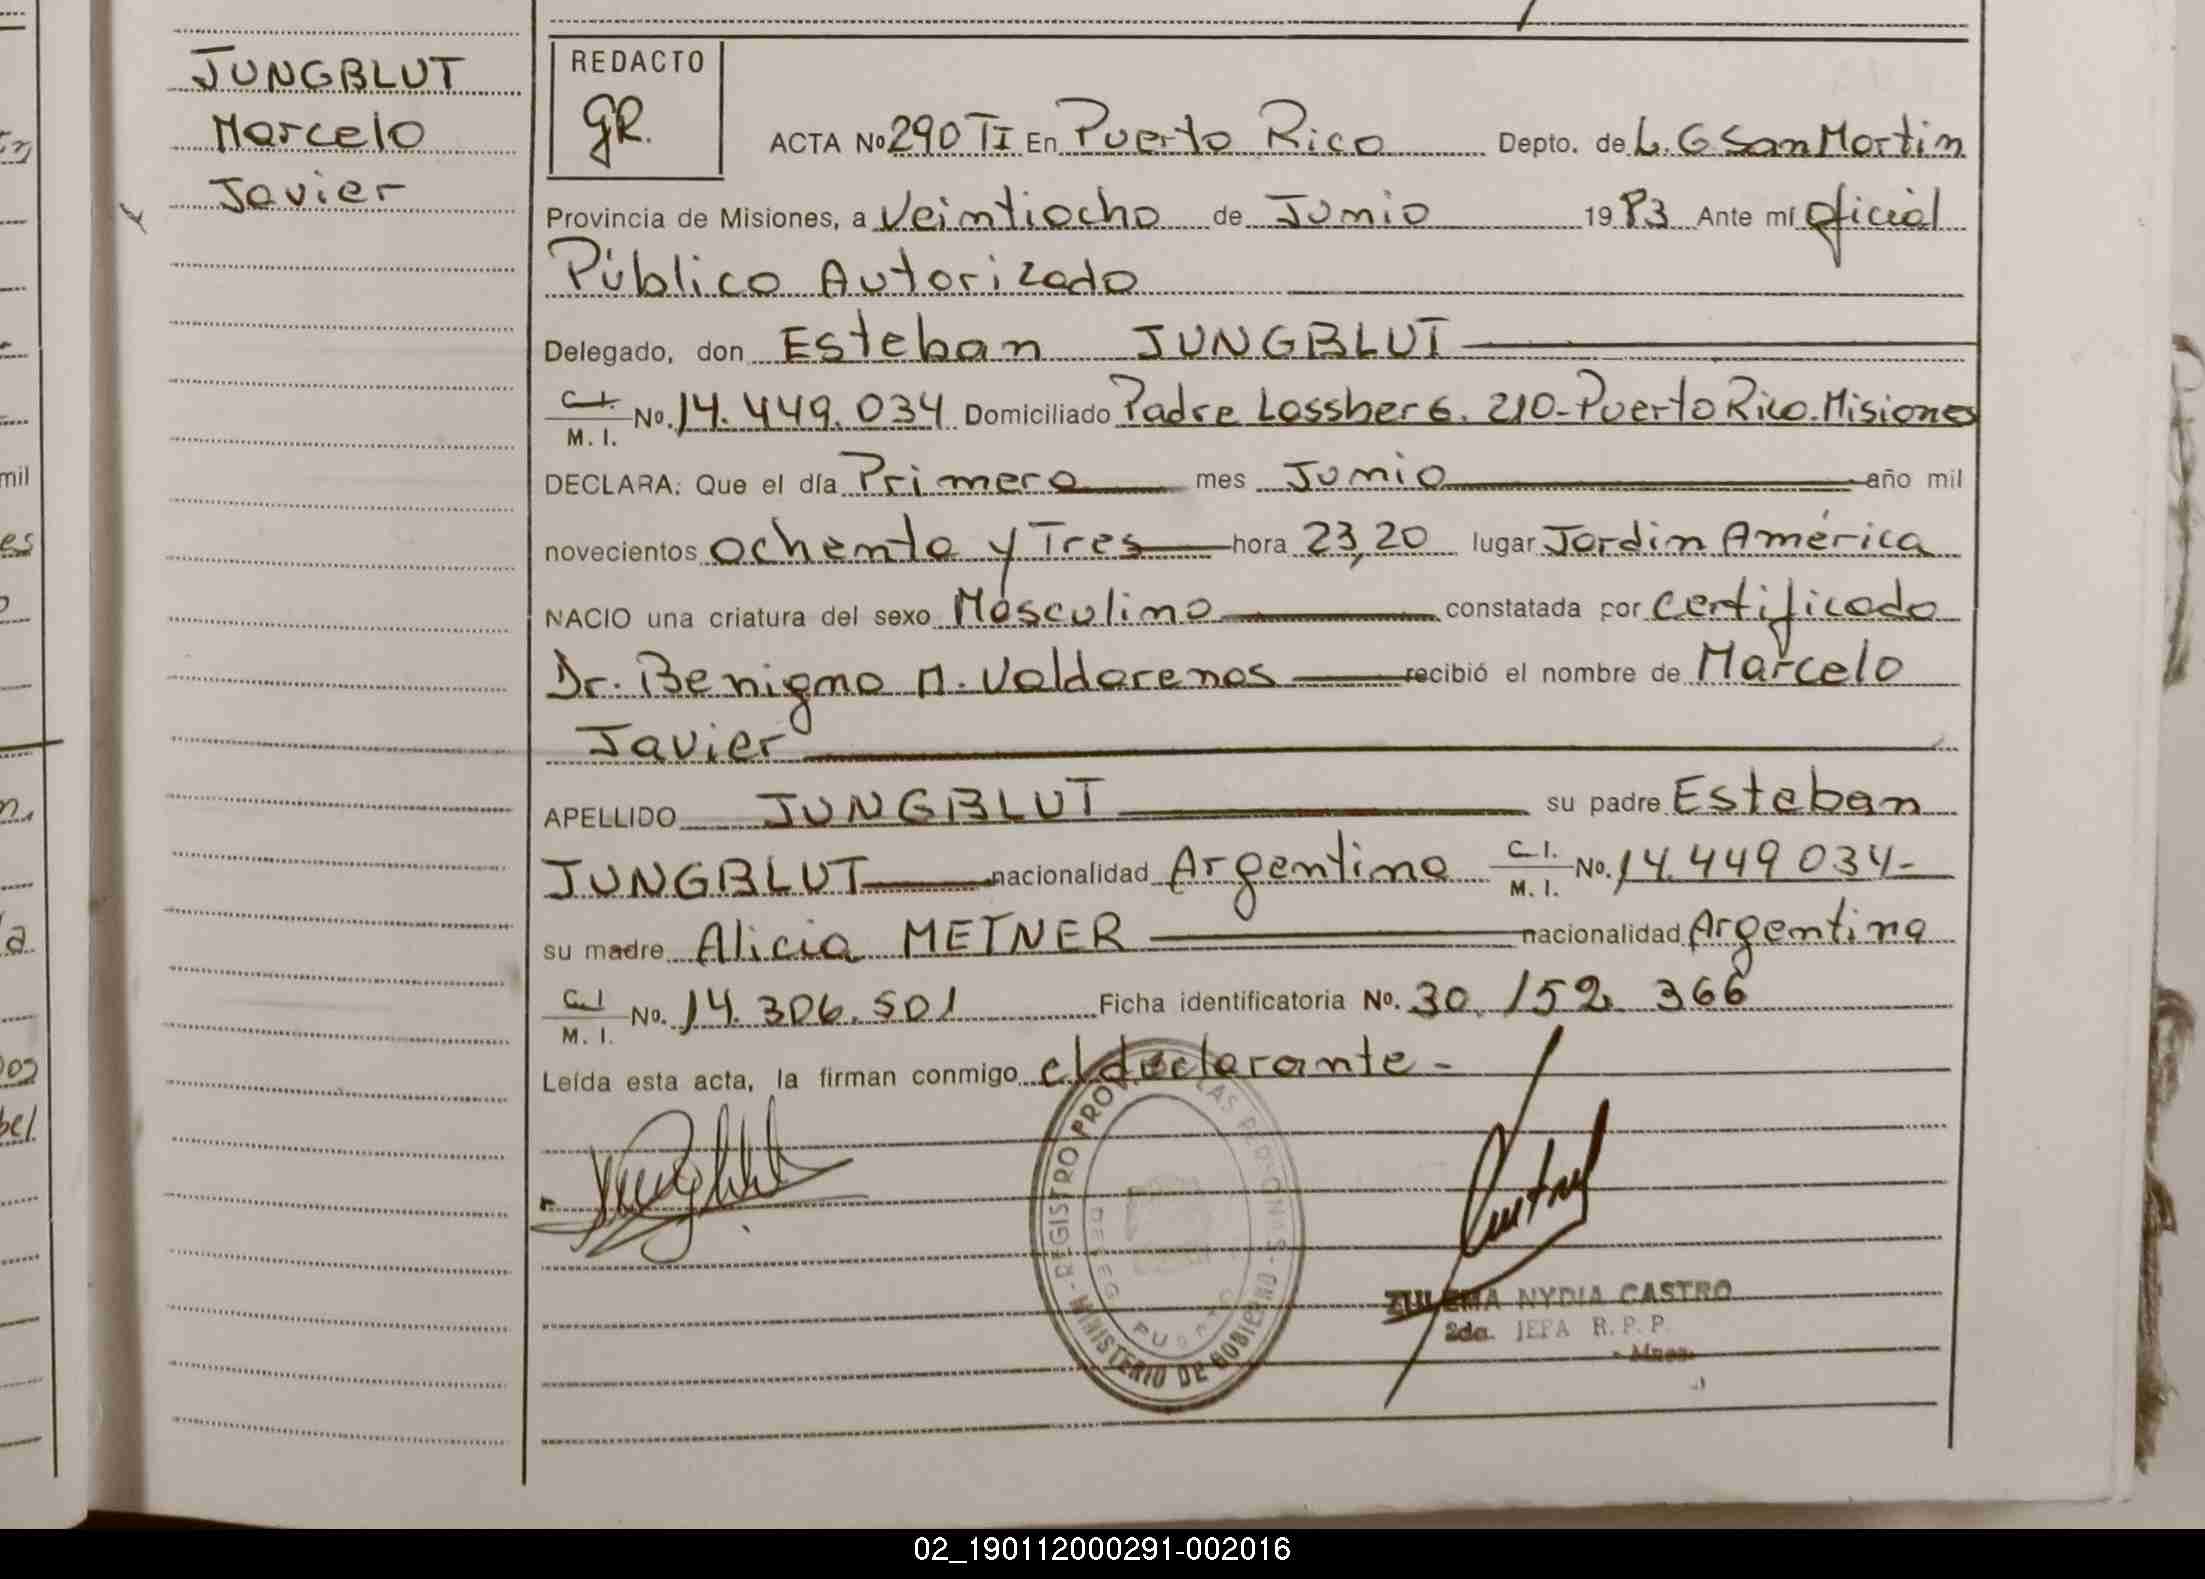 JUNGBLUT
Marcelo
Javier
REDACTO
GR.
ACTA Nº 290 TI En Puerto Rico Depto. de L. G San Martin
Provincia de Misiones, a Veintiocho de Junio 1983 Ante mí oficial
Público Autorizado
Delegado, don Esteban JUNGBLUT
C.I. M. I. Nº. 14.449.034 Domiciliado Padre Lassberg. 210-Puerto Rico. Misiones
DECLARA: Que el día Primero mes Junio año mil
novecientos ochenta y Tres hora 23,20 lugar Jardin América
NACIO una criatura del sexo Masculino constatada por certificado
Dr. Benigno A. Valdarenas recibió el nombre de Marcelo
Javier
APELLIDO JUNGBLUT su padre Esteban
JUNGBLUT nacionalidad Argentino C I. M. I. Nº. 14.449 034-
su madre Alicia METNER nacionalidad Argentina
C.I M. I. Nº. 14.306.501 Ficha identificatoria Nº. 30.152 366
Leída esta acta, la firman conmigo el declarante -
MINISTERIO DE GOBIERNO - REGISTRO PRO LAS PERSONAS
DELEG PUERTO
ZULEMA NYDIA CASTRO
2da. JEFA R. P. P.
- Mnes.
mil
es
a
bel
02_190112000291-002016